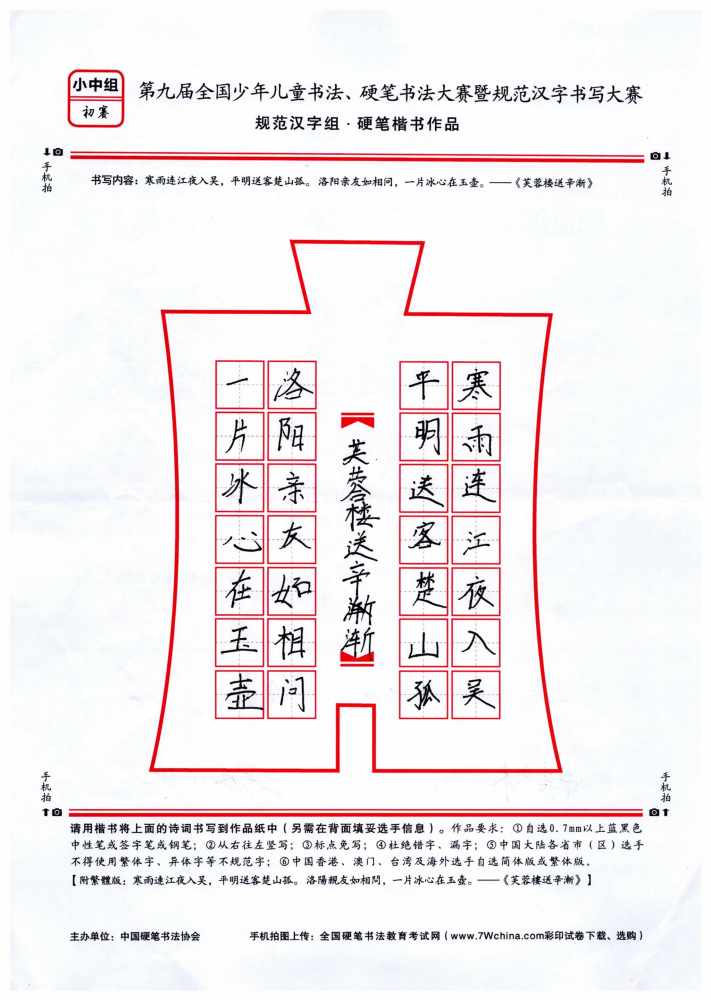 小中组
初赛
第九届全国少年儿童书法、硬笔书法大赛暨规范汉字书写大赛
规范汉字组·硬笔楷书作品
手机拍
手机拍
书写内容：寒雨连江夜入吴，平明送客楚山孤。洛阳亲友如相问，一片冰心在玉壶。——《芙蓉楼送辛渐》
寒雨连江夜入吴
平明送客楚山孤
芙蓉楼送辛漸渐
洛阳亲友如相问
一片冰心在玉壶
手机拍
手机拍
请用楷书将上面的诗词书写到作品纸中（另需在背面填妥选手信息）。作品要求：①自选0.7mm以上蓝黑色
中性笔或签字笔或钢笔；②从右往左竖写；③标点免写；④杜绝错字、漏字；⑤中国大陆各省市（区）选手
不得使用繁体字、异体字等不规范字；⑥中国香港、澳门、台湾及海外选手自选简体版或繁体版。
【附繁體版：寒雨連江夜入吴，平明送客楚山孤。洛陽親友如相問，一片冰心在玉壶。——《芙蓉樓送辛漸》】
主办单位：中国硬笔书法协会
手机拍图上传：全国硬笔书法教育考试网（www.7Wchina.com彩印试卷下载、选购）